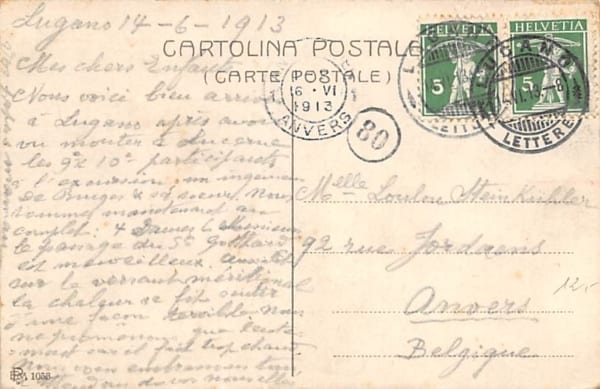 Lugano 14-6-1913
CARTOLINA POSTALE
(CARTE POSTALE)
Mes chers Enfants
Nous voici bien arrivés
à Lugano après avoir
vu monter à Lucerne
les 9e & 10e participants
à l'excursion, un ingénieur
de Bruges & sa soeur. Nous
sommes maintenant au
complet: 4 Dames 6 Messieurs
le passage du St Gothard
est merveilleux. Aussitôt
sur le versant méridional
la chaleur se fit sentir
d'une façon terrible. Nous
ne promenons que
mais il fait trop chaud
vous embrassent
de vos nouvelles
HELVETIA
5
HELVETIA
5
LUGANO
LETTERE
ANVERS
6 VI
1913
80
Melle Loulou Steinkühler
92 rue Jordaens
Anvers
Belgique
12,-
1056